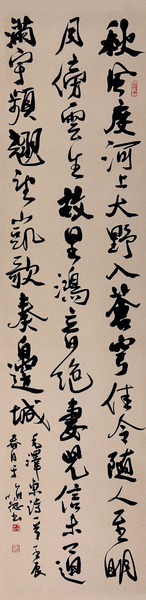 秋風度河上大野入蒼穹佳令隨人至明
月傍雲生故里鴻音絕妻兒信未通
滿宇頻翹望凱歌奏邊城
毛澤東詩一首壬辰
春月于
書